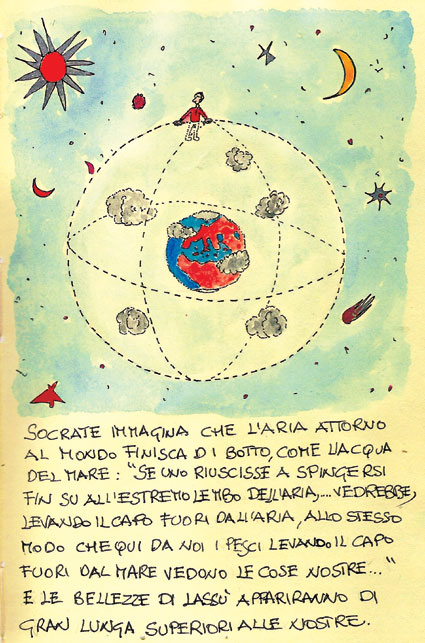 SOCRATE IMMAGINA CHE L'ARIA ATTORNO
AL MONDO FINISCA DI BOTTO, COME L'ACQUA
DEL MARE: "SE UNO RIUSCISSE A SPINGERSI
FIN SU ALL'ESTREMO LEMBO DELL'ARIA,... VEDREBBE,
LEVANDO IL CAPO FUORI DALL'ARIA, ALLO STESSO
MODO CHE QUI DA NOI I PESCI LEVANDO IL CAPO
FUORI DAL MARE VEDONO LE COSE NOSTRE..."
E LE BELLEZZE DI LASSÙ APPARIRANNO DI
GRAN LUNGA SUPERIORI ALLE NOSTRE.